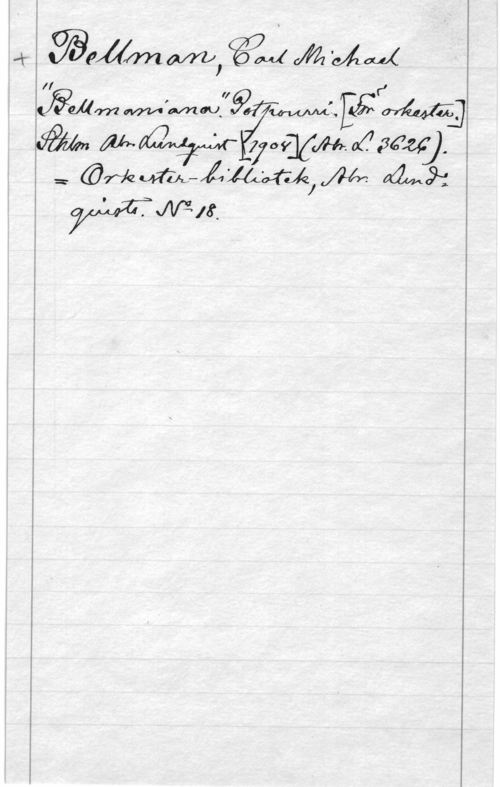 + Bellman, Carl Michael
"Bellmaniana". Potpourri. [För orkester.]
Sthlm Abr. Lundquist [1904] (Abr. L. 3626).
= Orkester-bibliotek, Abr. Lund=
quists. Nº 18.